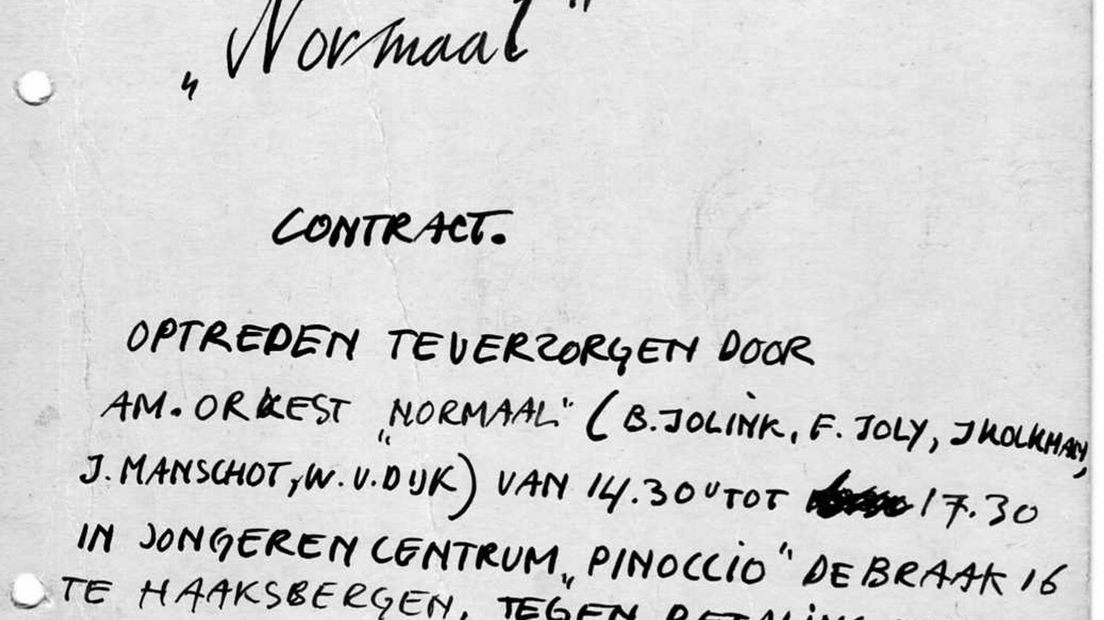 „Normaal"
CONTRACT.
OPTREDEN TE VERZORGEN DOOR
AM. ORKEST „NORMAAL" (B. JOLINK, F. JOLY, J KOLKMAN,
J. MANSCHOT, W. V. DIJK) VAN 14.30 U TOT 17.30
IN JONGEREN CENTRUM „PINOCCIO" DE BRAAK 16
TE HAAKSBERGEN, TEGEN BETALING